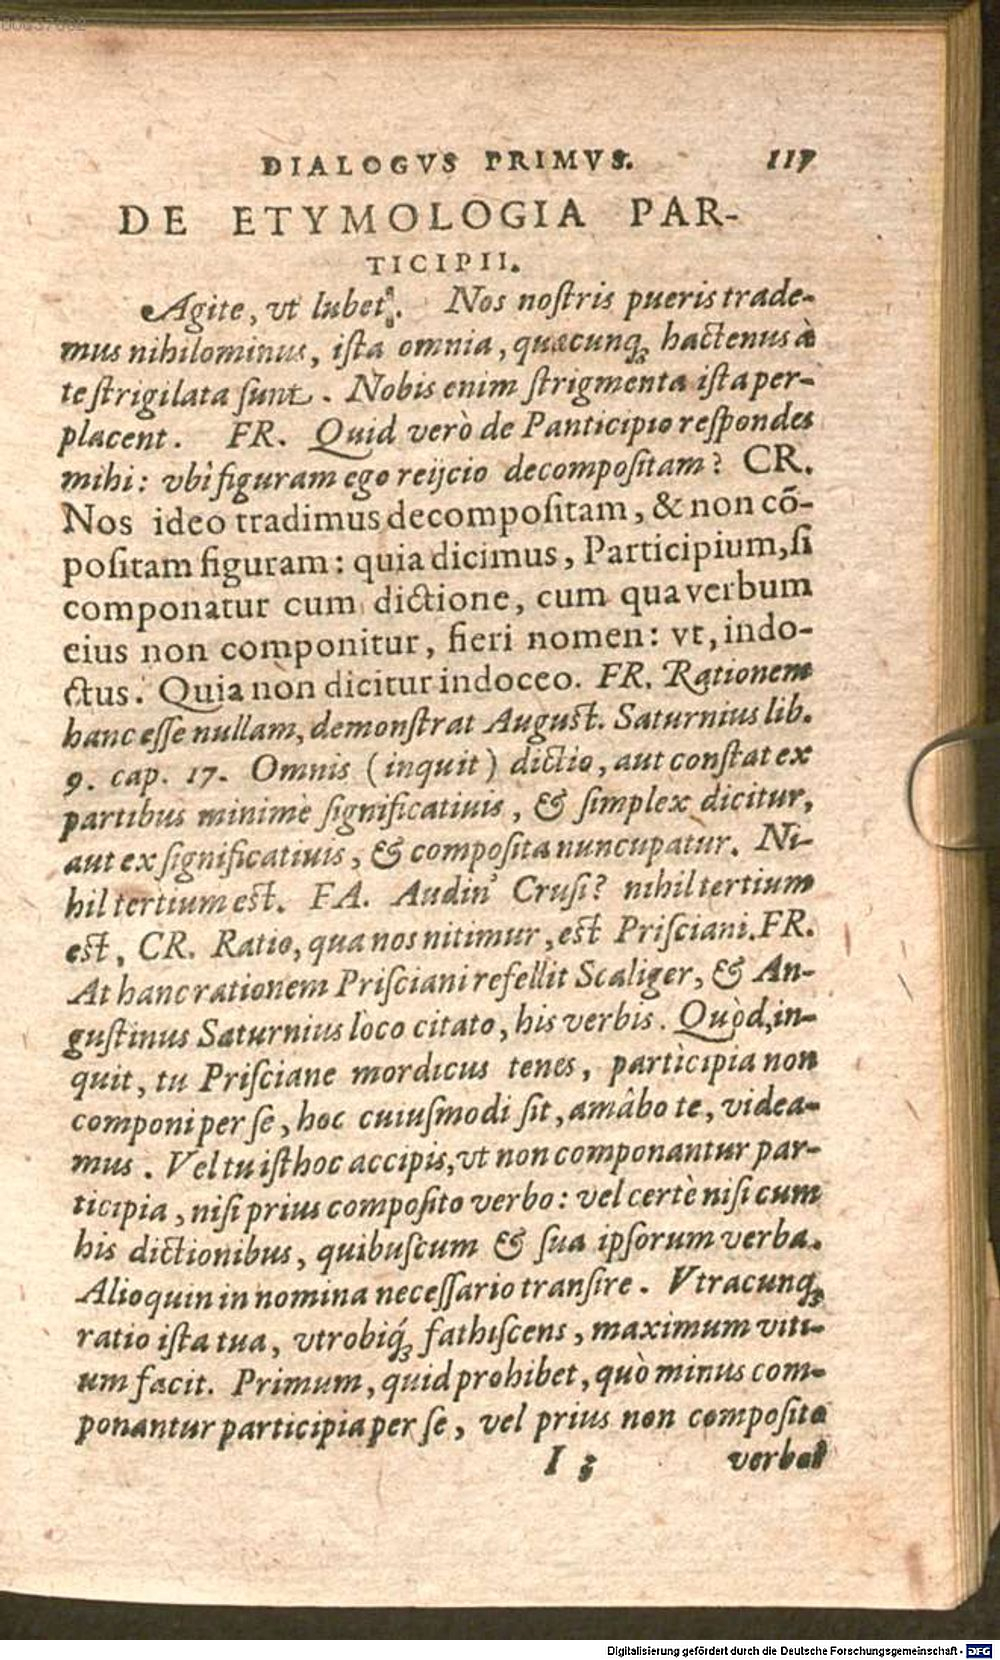 DIALOGVS PRIMVS. 117
DE ETYMOLOGIA PAR-
TICIPII.
Agite, vt lubet. Nos noſtris pueris trade-
mus nihilominus, iſta omnia, quæcunq́ꝫ hactenus à
te ſtrigilata ſunt. Nobis enim ſtrigmenta iſta per-
placent. FR. Quid verò de Panticipio reſpondes
mihi: vbi figuram ego reijcio decompoſitam? CR.
Nos ideo tradimus decompoſitam, & non cō-
poſitam figuram: quia dicimus, Participium, ſi
componatur cum dictione, cum qua verbum
eius non componitur, fieri nomen: vt, indo-
ctus. Quia non dicitur indoceo. FR. Rationem
hanc eſſe nullam, demonſtrat Auguſt. Saturnius lib.
9. cap. 17. Omnis (inquit) dictio, aut conſtat ex
partibus minimè ſignificatiuis, & ſimplex dicitur,
aut ex ſignificatiuis, & compoſita nuncupatur. Ni-
hil tertium eſt. FA. Audin' Cruſi? nihil tertium
eſt, CR. Ratio, qua nos nitimur, eſt Priſciani. FR.
At hanc rationem Priſciani refellit Scaliger, & An-
guſtinus Saturnius loco citato, his verbis. Quòd, in-
quit, tu Priſciane mordicus tenes, participia non
componi per ſe, hoc cuiuſmodi ſit, amâbo te, videa-
mus. Vel tu iſthoc accipis, vt non componantur par-
ticipia, niſi prius compoſito verbo: vel certè niſi cum
his dictionibus, quibuſcum & ſua ipſorum verba.
Alioquin in nomina neceſſario tranſire. Vtracunqꝫ
ratio iſta tua, vtrobiq́ꝫ fathiſcens, maximum viti-
um facit. Primum, quid prohibet, quò minus com-
ponantur participia per ſe, vel prius non compoſito
I 3 verbo?